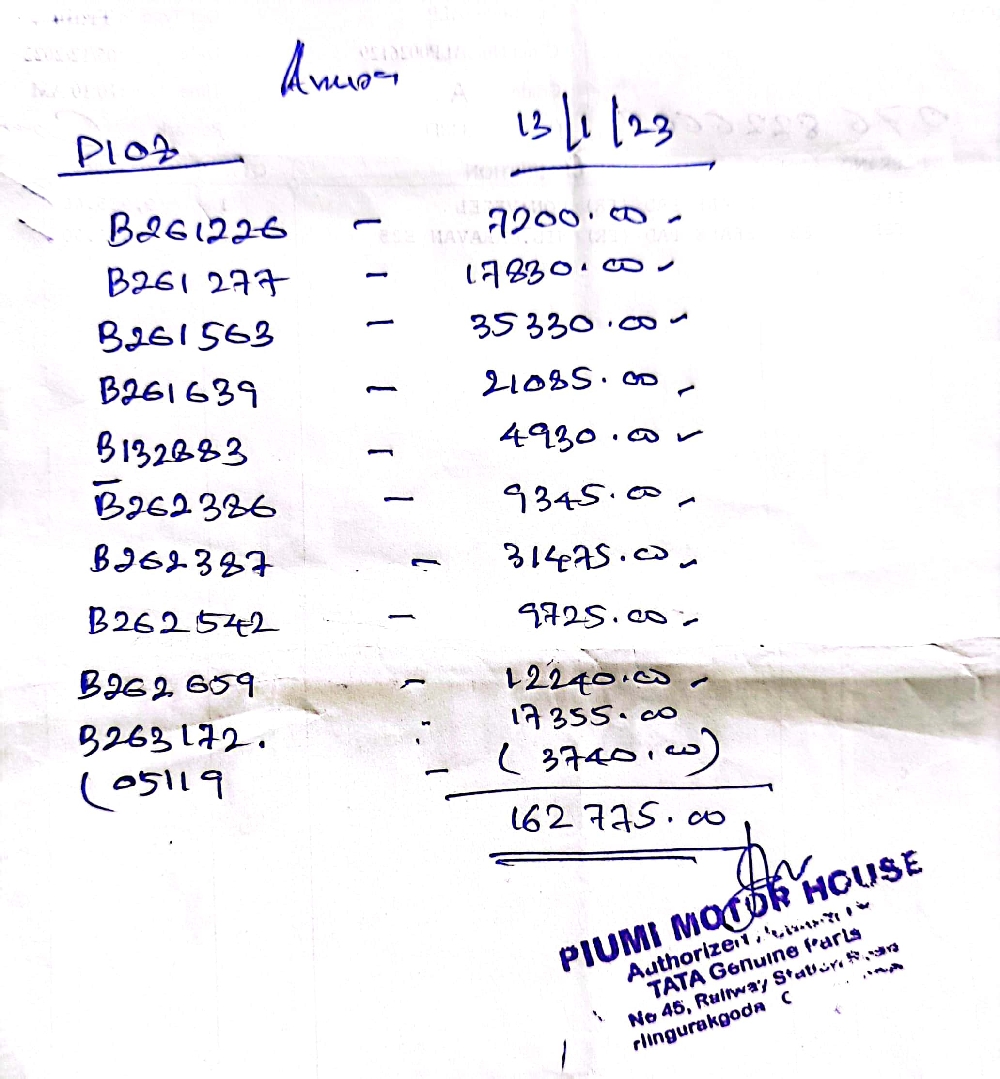 13/1/23
B261226 - 7200.00
B261277 - 17830.00
B261563 - 35330.00
B261639 - 21085.00
B132883 - 4930.00
B262386 - 9345.00
B262387 - 31475.00
B262542 - 9725.00
B262659 - 12240.00
B263172. 17355.00
(05119 - (3740.00)
162775.00
PIUMI MOTOR HOUSE
TATA Genuine Parts
No 45, Railway Station